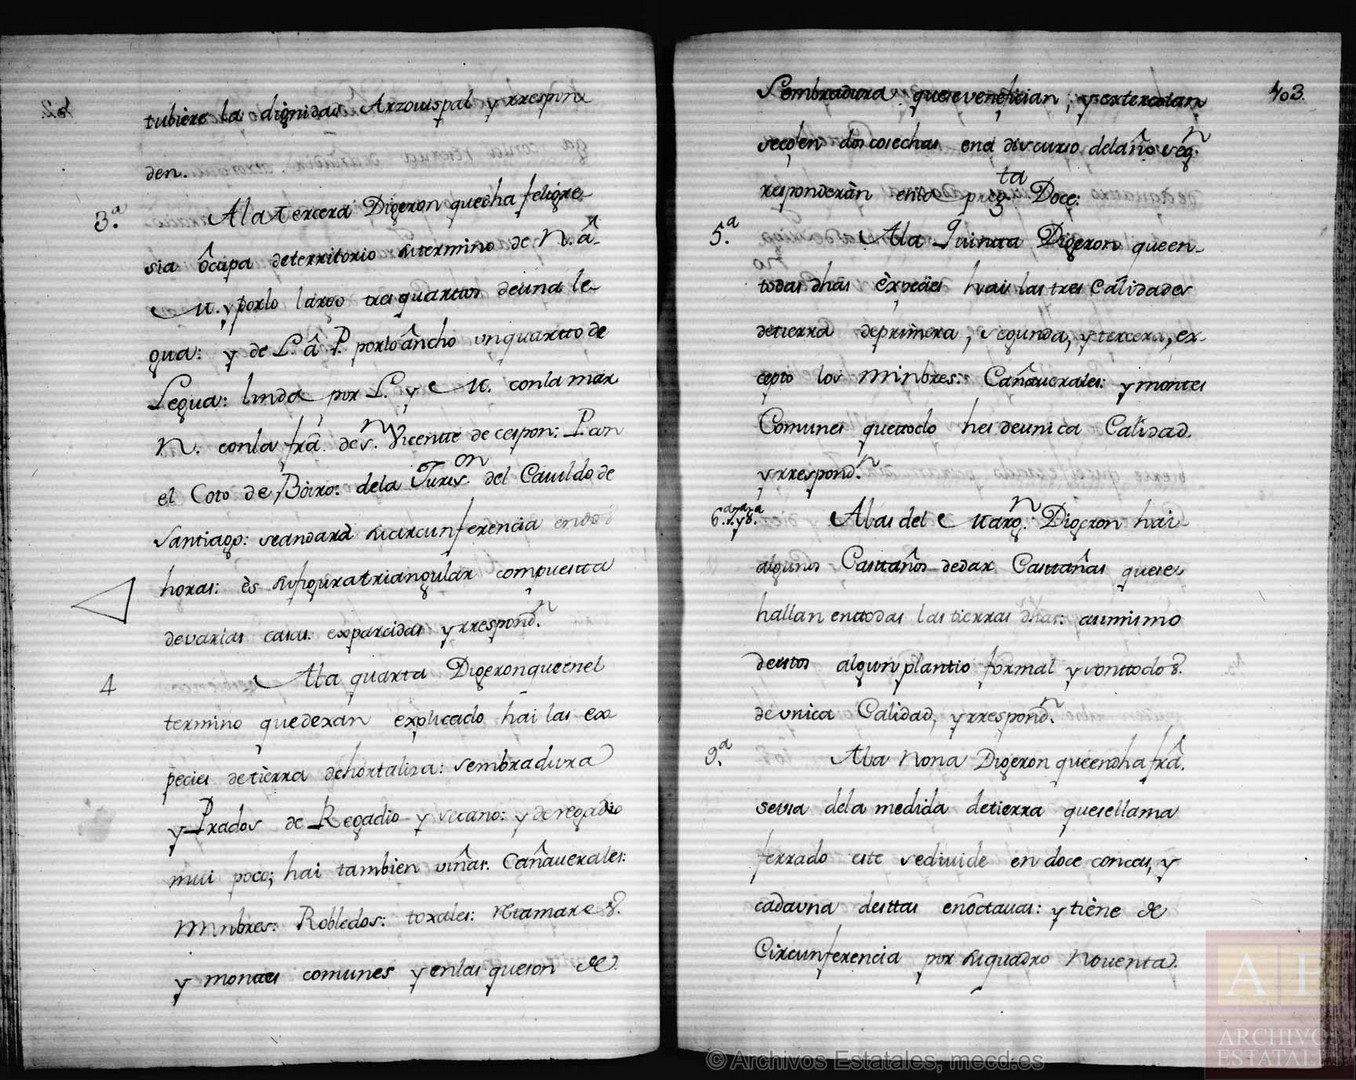 tubiere la dignidad Arzouispal y rrespon
den.
3.ª Ala tercera Digeron quedha feligre
sia ôcupa deterritorio sutermino de N. â
M. y porlo largo tres quartos deuna le
gua: y de L. â P. porlo âncho unquartto de
Legua: linda por L. y M. conla mar
N. conla frâ. de S.n Vicente de cespon: P. an
el Coto de Boiro: dela Juris.on del Cauildo de
Santiago: seandarâ sucircunferencia endos
horas: ês sufigura triangular compuestta
devarias casas exparcidas y rrespond.n
4 Ala quarta Digeron queenel
termino quedexan explicado hai las ex
pecies detierra dehortaliza: sembradura
y Prados de Regadio y secano: y de regadio
mui poco; hai tambien viñas. Cañauerales:
Minbres: Robledos: toxales: rettamare &.
y montes comunes y enlas queson de
403.
Sembradura quesevenefician, y extercolan
secojen dos cosechas enel discurso delaño seg.n
responderân enla preg.ta Doce:
5.ª Ala Quinta Digeron queen
todas dhâs êxpecies hai las tres Calidades
detierra deprimera, segunda, y tercera, ex-
cepto los Minbres: Cañauerales: y montes
Comunes quetodo hes deunica Calidad.
y rrespond.n
6.ª 7.ª y 8.ª Alas del Marg.n Digeron hai
algunos Casttaños dedar Casttañas quese
hallan enttodas las tierras dhâs: asimismo
destos algun plantio formal y sonttodo s.
deunica Calidad, y rrespond.n
9.ª Ala Nona Digeron queendha frâ.
seusa dela medida detierra quesellama
ferrado este sedivide en doce concas, y
cadauna desttas enôctauas: y tiêne de
Circunferencia por suquadro Noventa
© Archivos Estatales, mecd.es
AE
ARCHIVOS
ESTATALES